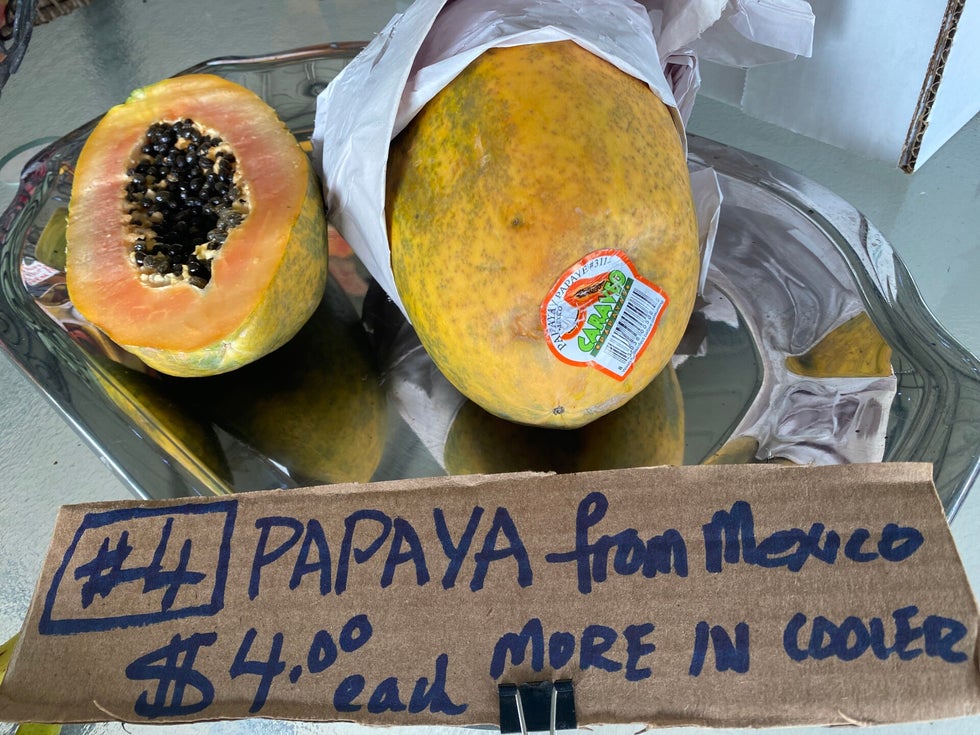 PAPAYA / PAPAYE #311
CARAVEO
#4 PAPAYA from Mexico
$4.00 each MORE IN COOLER